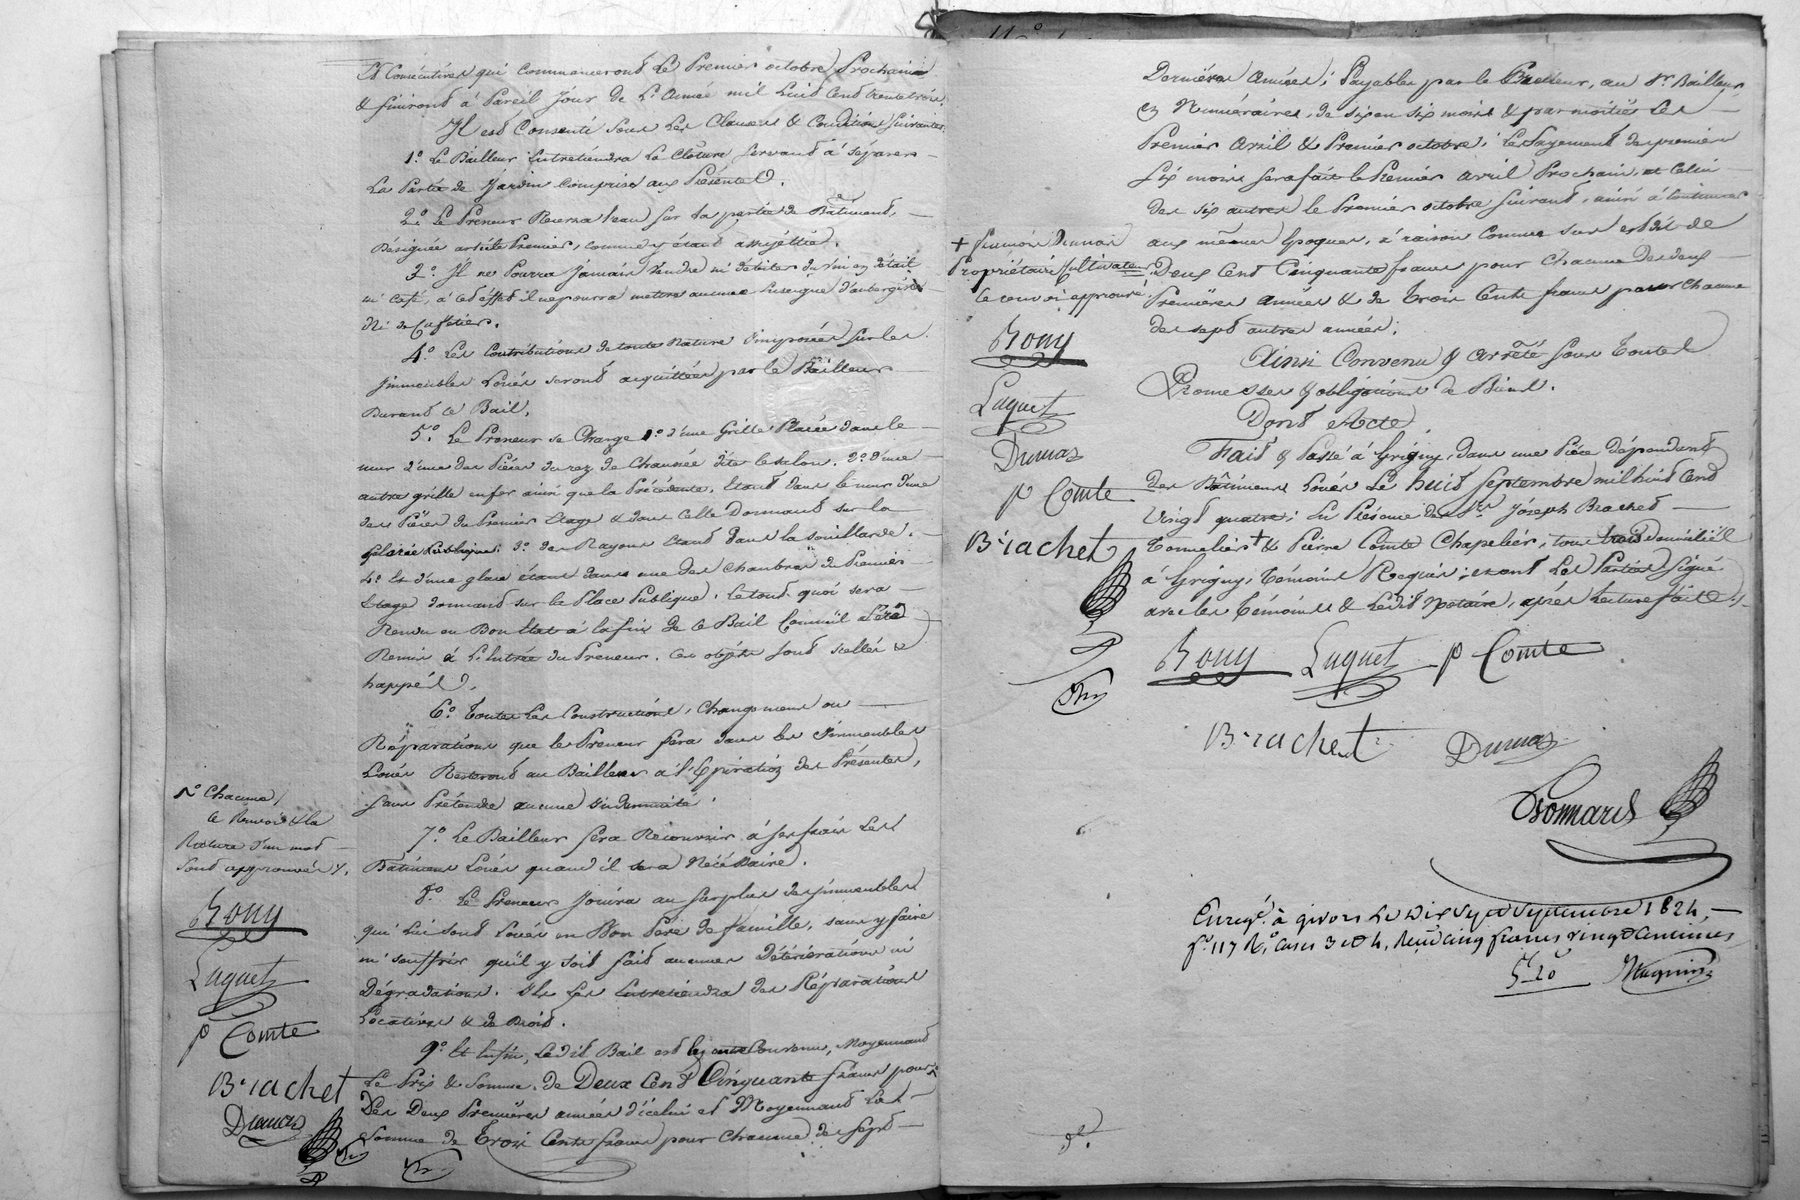 et Consécutives qui commenceront Le Premier octobre Prochain
& finiront à Pareil Jour de L'année mil huit cent trente trois.
Il est Consenti sous Les Clauses & Conditions suivantes.
1.° Le Bailleur Entretiendra La Clôture servant à séparer
La Partie de Jardin comprise aux Présentes.
2.° Le Preneur Recevra l'eau sur la partie de Bâtiment,
Désignée article Premier, comme y étant assujettie.
3.° Il ne Pourra Jamais vendre ni débiter du vin en détail
ni café, à cet effet il ne pourra mettre aucune Enseigne d'aubergiste
Ni de Cafetier.
4.° Les Contributions de toute Nature imposées sur les
immeubles Loués seront acquittées par le Bailleur
Durant ce Bail.
5.° Le Preneur se Charge 1.° d'une Grille Placée dans le
mur d'une des Pièces du rez de Chaussée dite le salon. 2.° d'une
autre grille en fer ainsi que la Précédente, Etant dans le mur d'une
des Pièces du Premier Etage & dans celle Donnant sur la
place Publique. 3.° des Rayons étant dans la souillarde.
4.° Et d'une glace étant dans une des Chambres du Premier
Etage donnant sur la Place Publique. Le tout quoi sera
Rendu en Bon Etat à la fin de ce Bail Comme il a été
Remis à L'Entrée du Preneur. Ces objets sont scellés &
happés.
6.° Toutes Les Constructions, Changemens ou
Réparations que le Preneur fera dans les immeubles
Loués Resteront au Bailleur à l'Expiration des Présentes,
sans Prétendre aucune indemnité.
7.° Le Bailleur fera Recouvrir à ses frais Les
Bâtimens Loués quand il sera Nécéssaire.
8.° Le Preneur Jouira au surplus des immeubles
qui Lui sont Loués en Bon Père de famille, sans y faire
ni souffrir qu'il y soit fait aucunes Détériorations ni
Dégradations. Il Les Entretiendra des Réparations
Locatives & de Droit.
9.° Et Enfin, Ledit Bail est Convenu, Moyennant
Le Prix & Somme, de Deux Cent Cinquante francs pour
Des Deux Premières années d'icelui et Moyennant La
Somme de Trois Cents francs pour Chacune des sept
Chacune
Ce Renvoi & la
Rature d'un mot
sont approuvés
Rony
Luquet
p Comte
Brachet
Dumas
Dernières Années; Payables par le Preneur, au Sr. Bailleur,
en Numéraires, de six en six mois & par moitié Les
Premier Avril & Premier octobre; Le Payement des premiers
Six mois sera fait le Premier Avril Prochain, et Celui
des six autres le Premier octobre suivant, ainsi à Continuer
aux mêmes Epoques, à raison comme sus est dit de
Deux Cent Cinquante francs pour Chacune des deux
Premières Années & de Trois Cents francs pour chacune
des sept autres années.
Ainsi Convenu & Arrêté sous Toutes
Promesses & obligations de Droit.
Dont Acte.
Fait & Passé à Grigny, dans une Pièce dépendant
des Bâtimens Loués Le huit Septembre mil huit Cent
Vingt quatre; En Présence des Srs Joseph Brachet
Tonnelier + & Pierre Comte Chapelier, tous trois Domiciliés
à Grigny, Témoins Requis; et ont Les Parties signé
avec les témoins & Ledit Notaire, après Lecture faite
+ Dumas
Propriétaire Cultivateur
Ce renvoi approuvé.
Rony
Luquet
Dumas
p Comte
Brachet
Rony Luquet p Comte
Brachet Dumas
Enregé. à givors Le Dix Sept Septembre 1824,
f° 117 R.° Cases 3 et 4, Reçu Cinq francs vingt Centimes
5.20